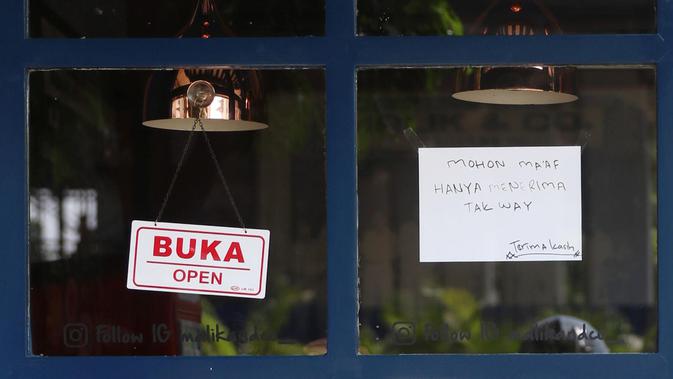 BUKA
OPEN
MOHON MA'AF
HANYA MENERIMA
TAK WAY
Terima kasih
Follow IG malikandco
Follow IG malikandco